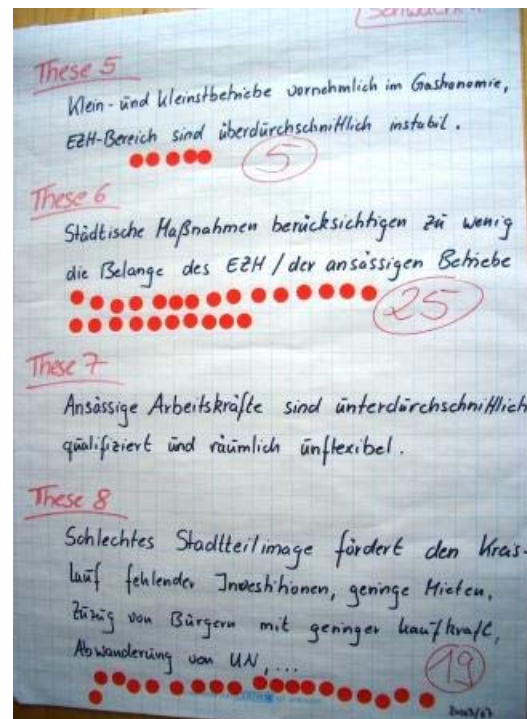 These 5
Klein- und Kleinstbetriebe vornehmlich im Gastronomie,
EZH-Bereich sind überdurchschnittlich instabil.
5
These 6
Städtische Maßnahmen berücksichtigen zu wenig
die Belange des EZH / der ansässigen Betriebe
25
These 7
Ansässige Arbeitskräfte sind unterdurchschnittlich
qualifiziert und räumlich unflexibel.
These 8
Schlechtes Stadtteilimage fördert den Kreis-
lauf fehlender Investitionen, geringe Mieten,
Zuzug von Bürgern mit geringer Kaufkraft,
Abwanderung von UN,...
19